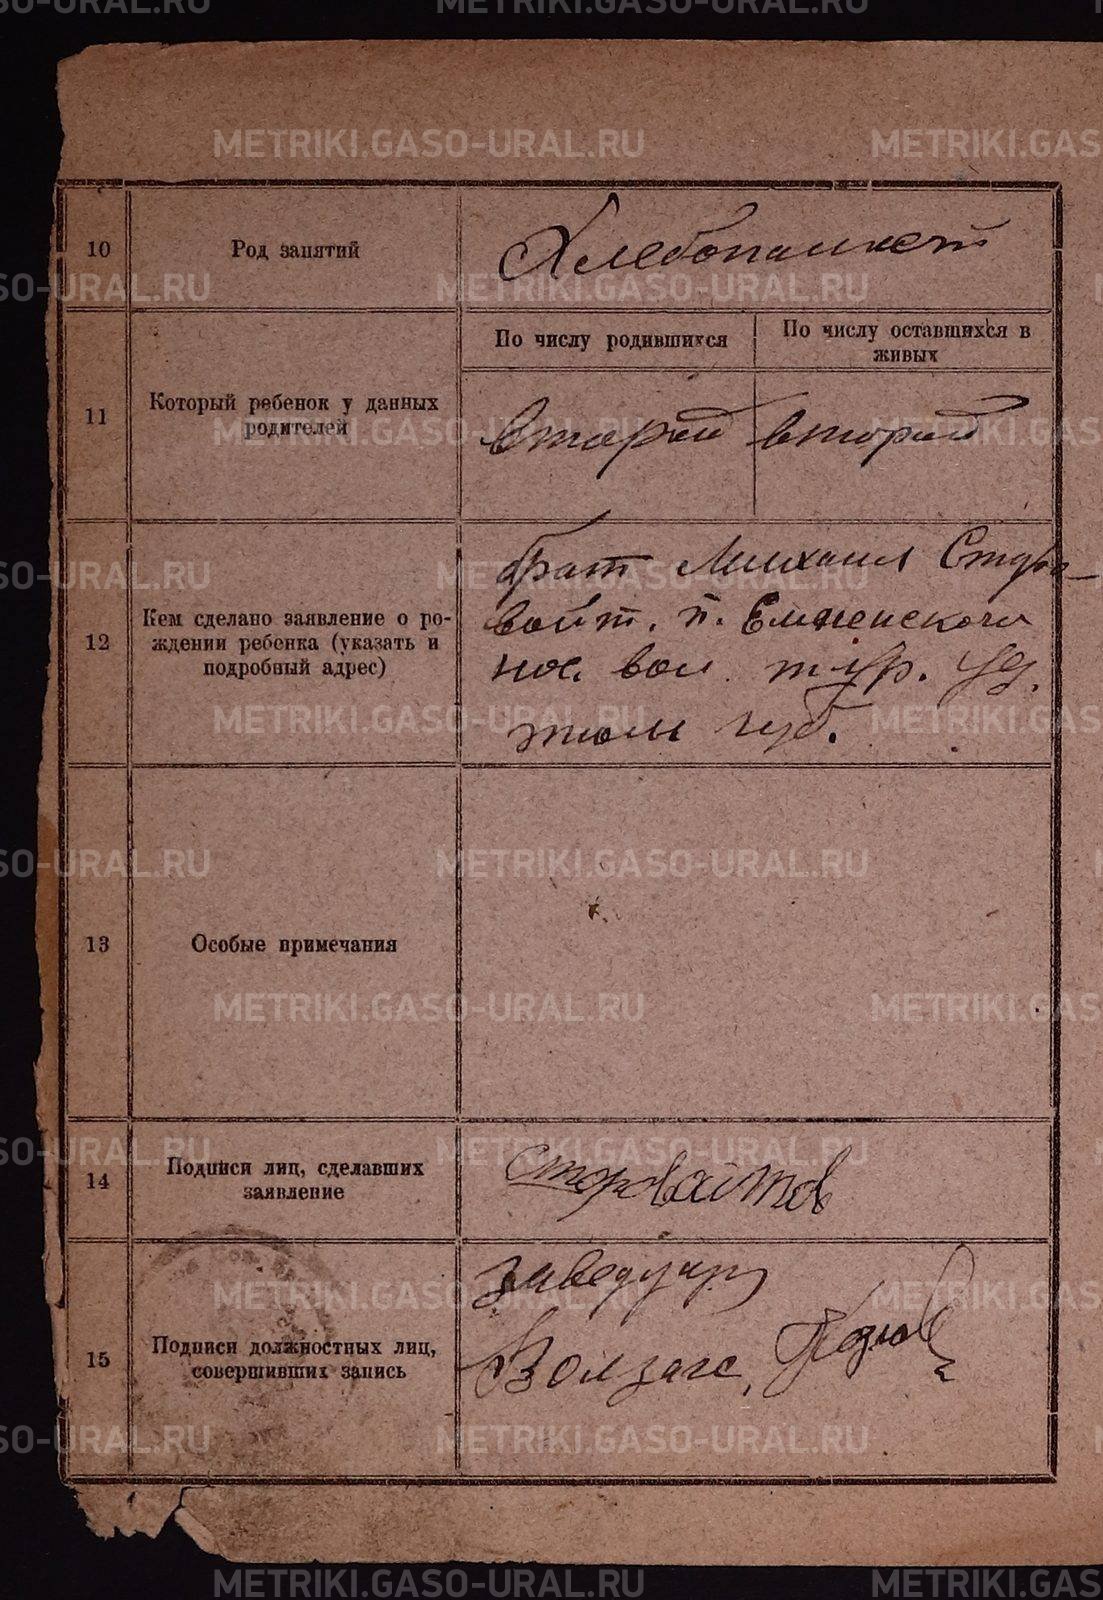 METRIKI.GASO-URAL.RU
10
Род занятий
Хлебопашест
11
Который ребенок у данных
родителей
По числу родившихся
По числу оставшихся в
живых
второй
второй
12
Кем сделано заявление о ро-
ждении ребенка (указать и
подробный адрес)
брат Михаил Старо-
войт. п.
пос. вол. тур. уез.
тюм губ.
13
Особые примечания
14
Подписи лиц, сделавших
заявление
Старовойтов
15
Подписи должностных лиц,
совершивших запись
заведующ
Волзагс.